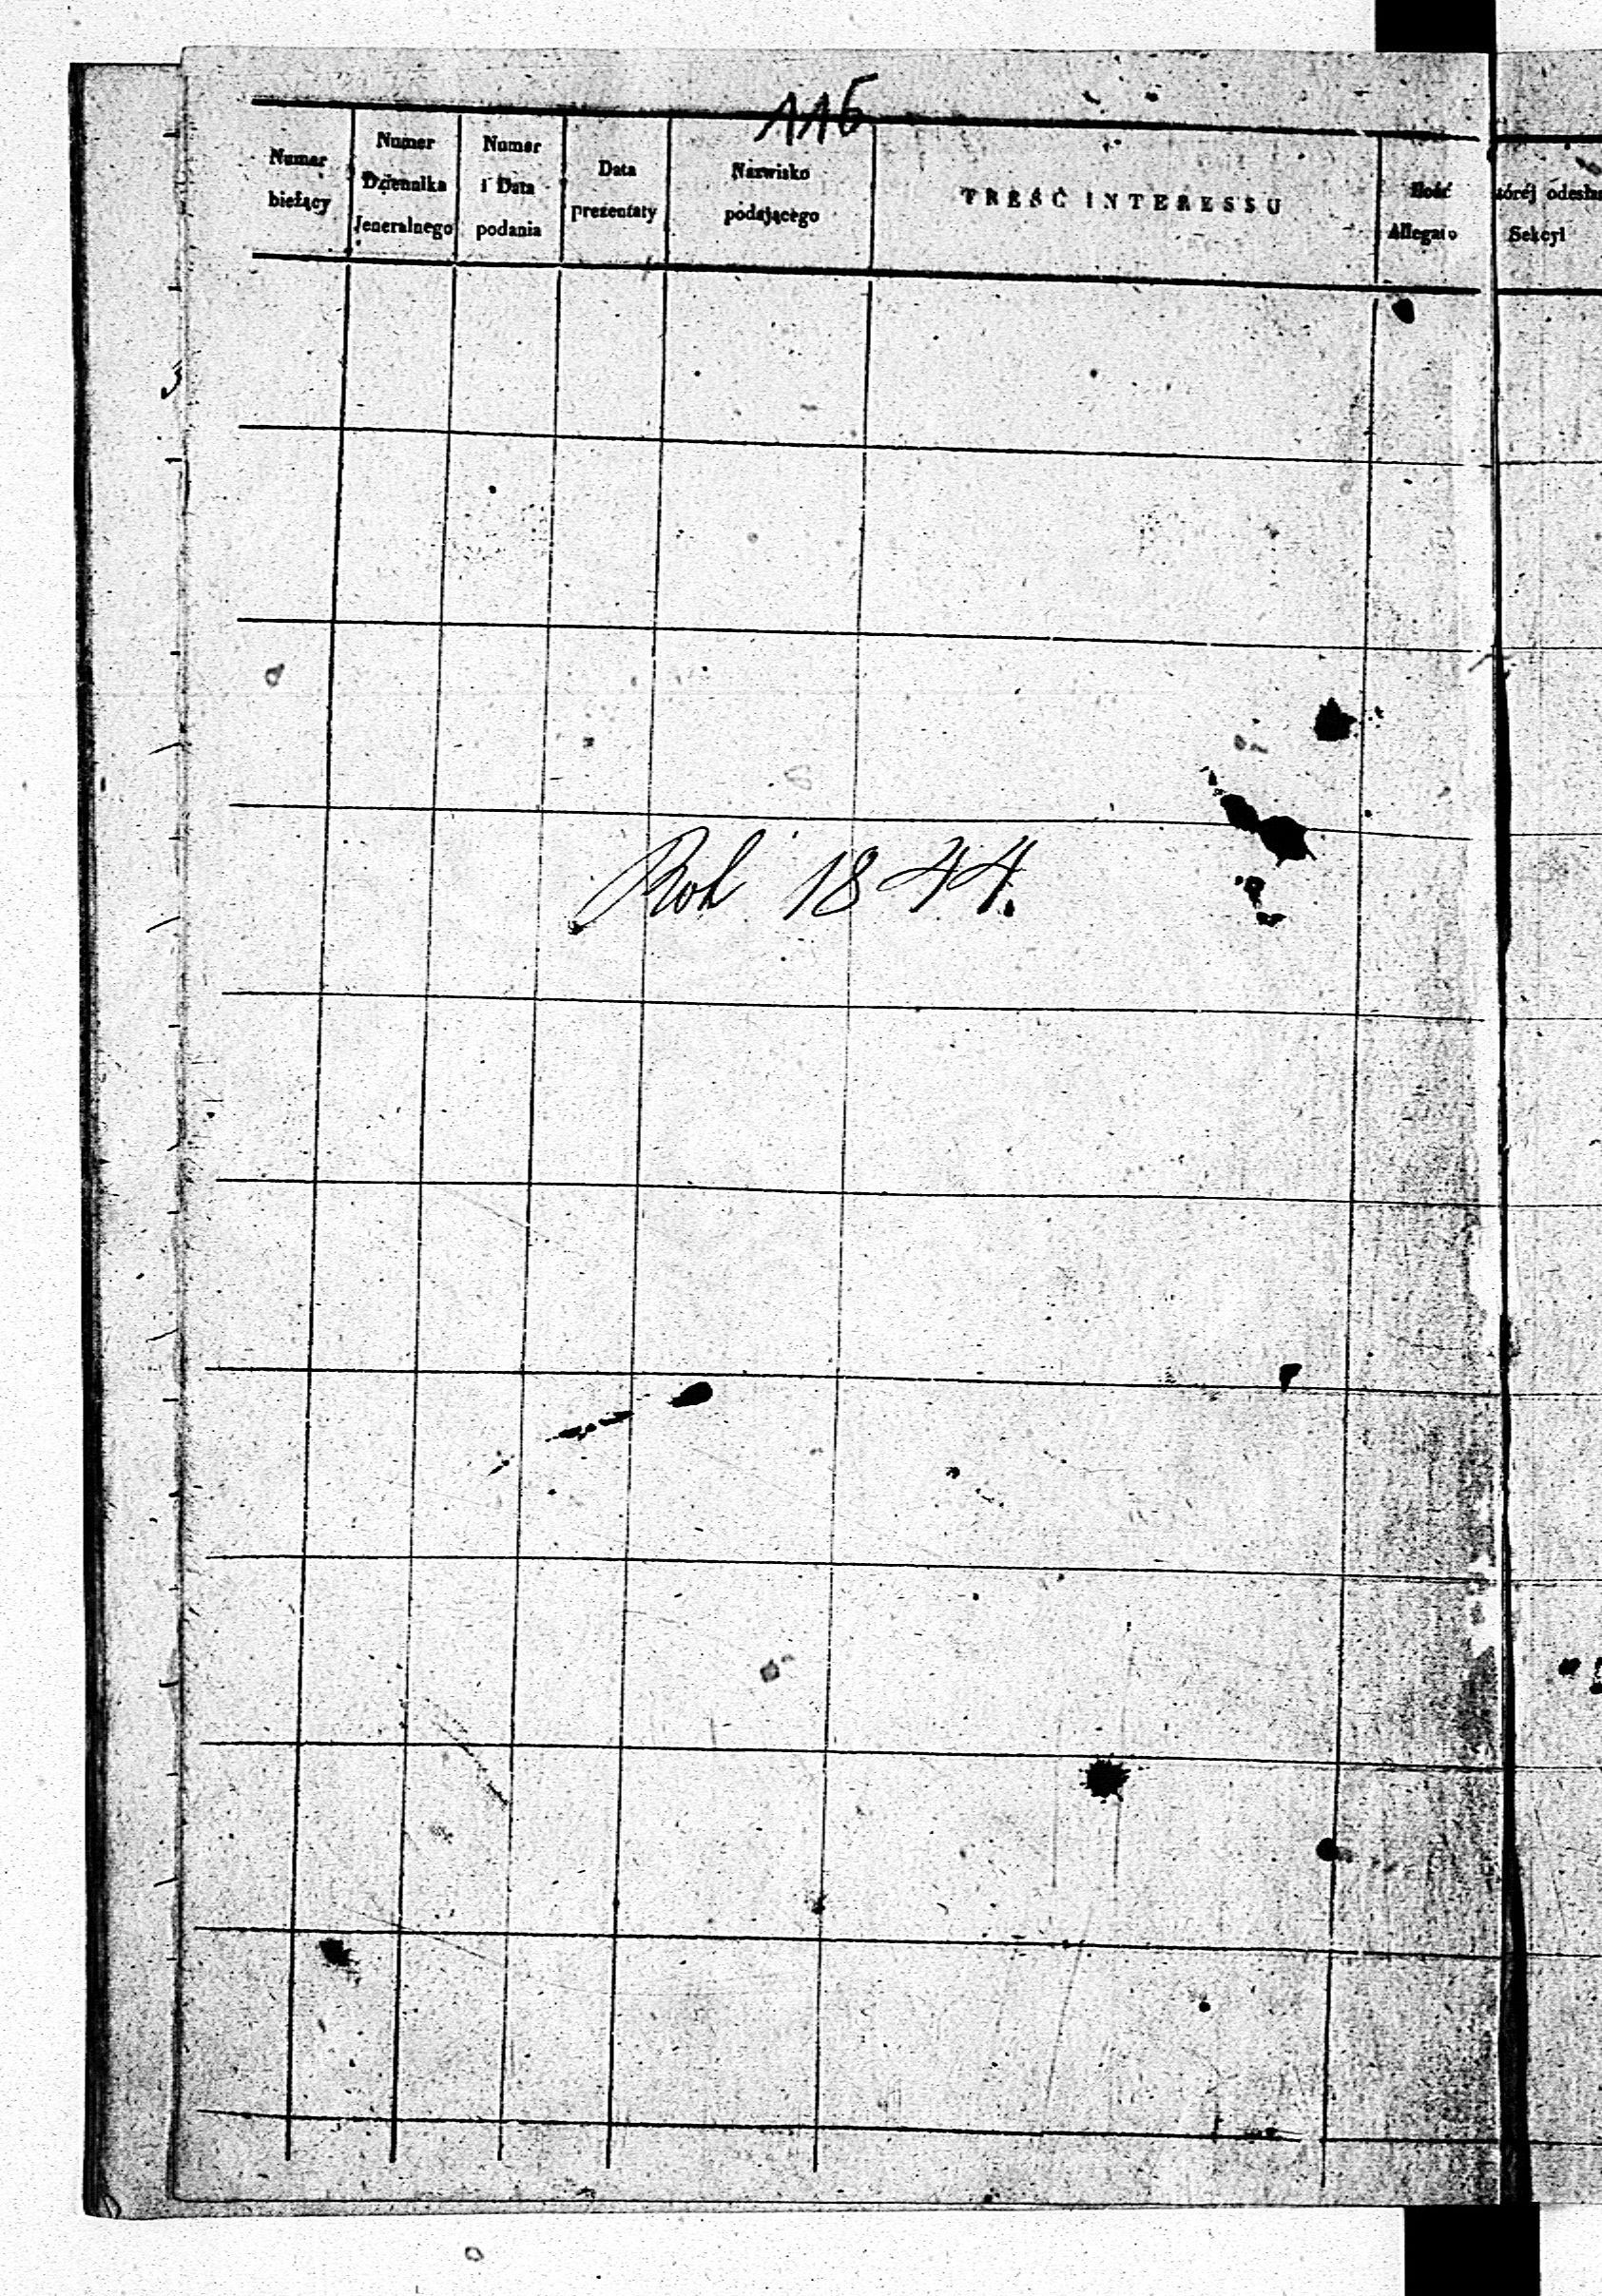 116
Numer bieżący
Numer Dziennika Jeneralnego
Numer i Data podania
Data prezentaty
Nazwisko podającego
TREŚĆ INTERESSU
Ilość Allegato
tóréj odesła
Sekcyi
Rok 1844.